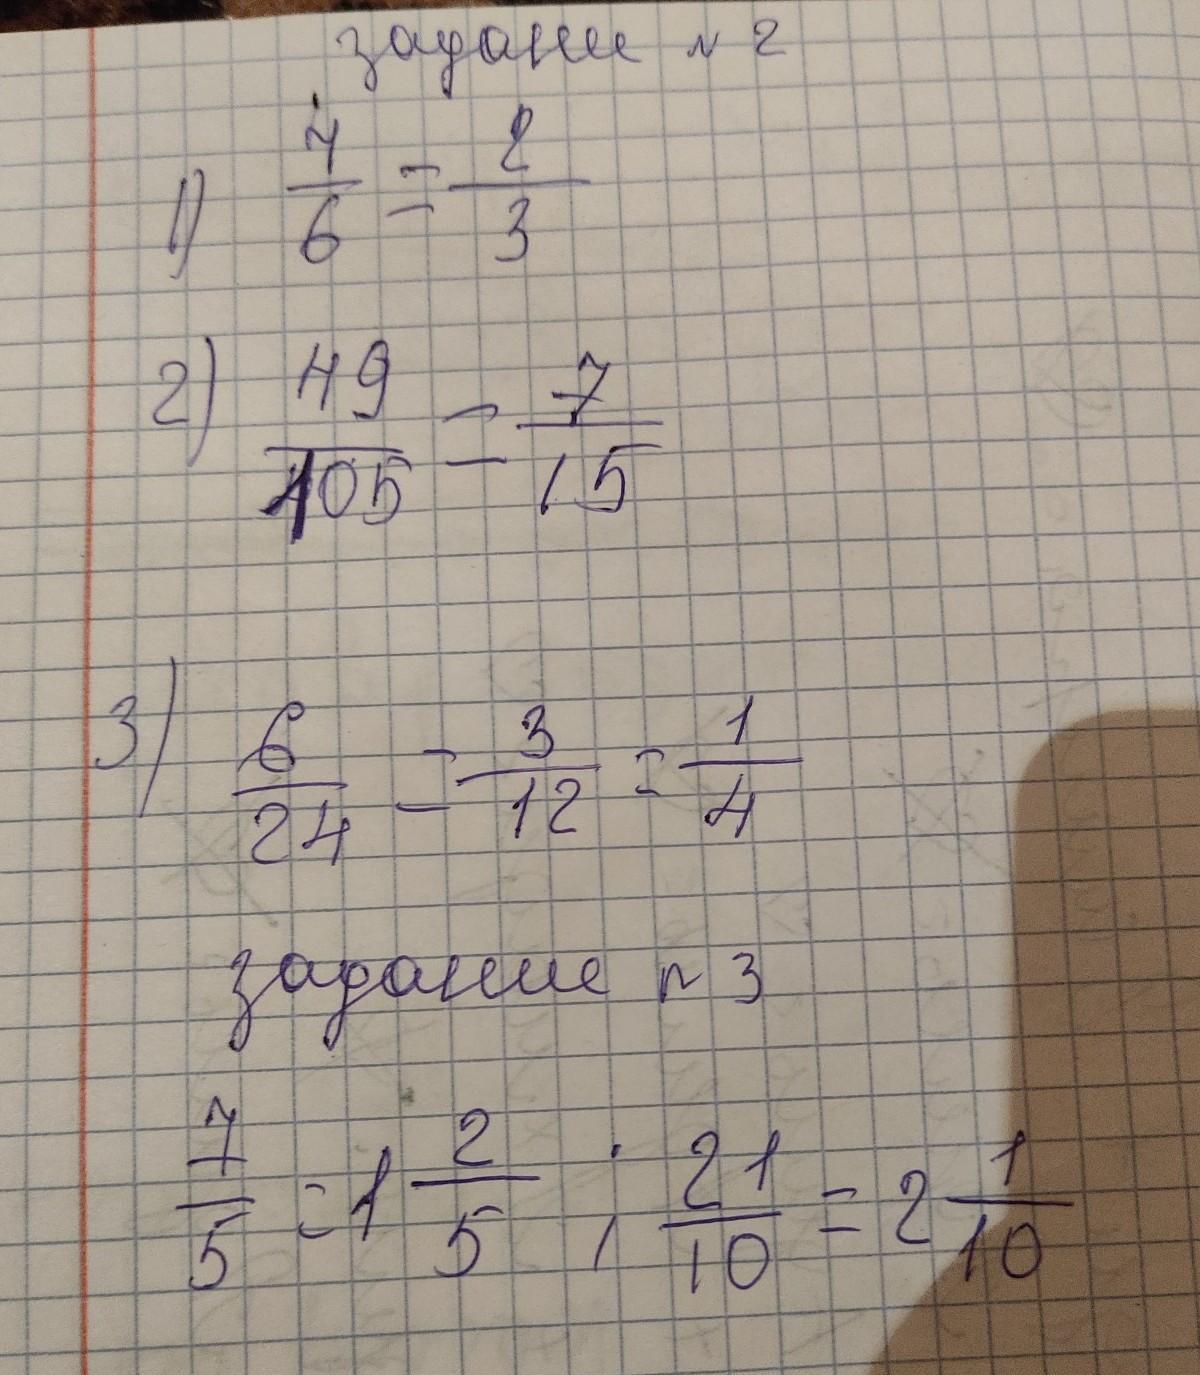 задание №2
1) 4/6 = 2/3
2) 49/105 = 7/15
3) 6/24 = 3/12 = 1/4
задание №3
7/5 = 1 2/5 ; 21/10 = 2 1/10